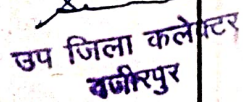 उप जिला कलेक्टर
वजीरपुर